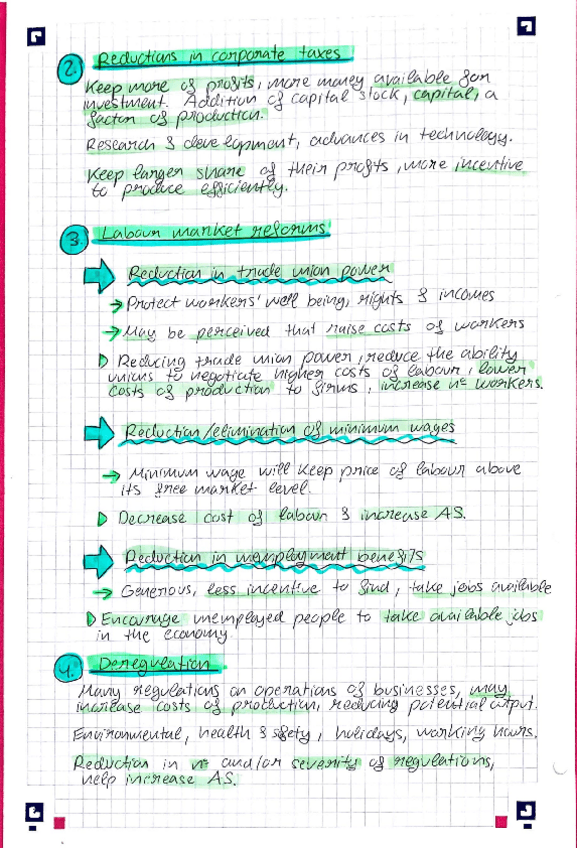 2. Reductions in corporate taxes
Keep more of profits, more money available for
investment. Addition of capital stock, capital, a
factor of production.
Research & development, advances in technology.
Keep larger share of their profits, more incentive
to produce efficiently.
3. Labour market reforms
Reduction in trade union power
→ Protect workers' well being, rights & incomes
→ May be perceived that raise costs of workers
Reducing trade union power, reduce the ability
unions to negotiate higher costs of labour, lower
costs of production to firms, increase nº workers.
Reduction/elimination of minimum wages
→ Minimum wage will keep price of labour above
its free market level.
Decrease cost of labour & increase AS.
Reduction in unemployment benefits
→ Generous, less incentive to find, take jobs available
Encourage unemployed people to take available jobs
in the economy
4. Deregulation
Many regulations on operations of businesses, may
increase costs of production, reducing potential output.
Environmental, health & safety, holidays, working hours.
Reduction in nº and/or severity of regulations,
help increase AS.